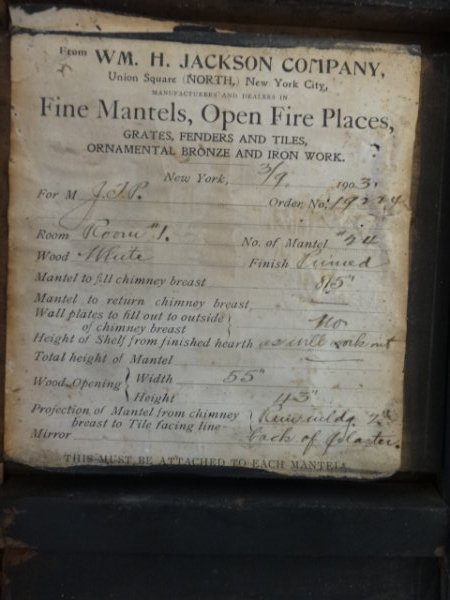 From WM. H. JACKSON COMPANY,
Union Square (NORTH,) New York City,
MANUFACTURERS AND DEALERS IN
Fine Mantels, Open Fire Places,
GRATES, FENDERS AND TILES,
ORNAMENTAL BRONZE AND IRON WORK.
New York, 3/9 1903
For M J.T.P. Order No.
Room Room #1. No. of Mantel #74
Wood White Finish Primed
Mantel to fill chimney breast 85"
Mantel to return chimney breast
Wall plates to fill out to outside of chimney breast } No
Height of Shelf from finished hearth as will work out
Total height of Mantel
Wood Opening { Width 55"
Height 43"
Projection of Mantel from chimney breast to Tile facing line {
Mirror back of plaster.
THIS MUST BE ATTACHED TO EACH MANTEL